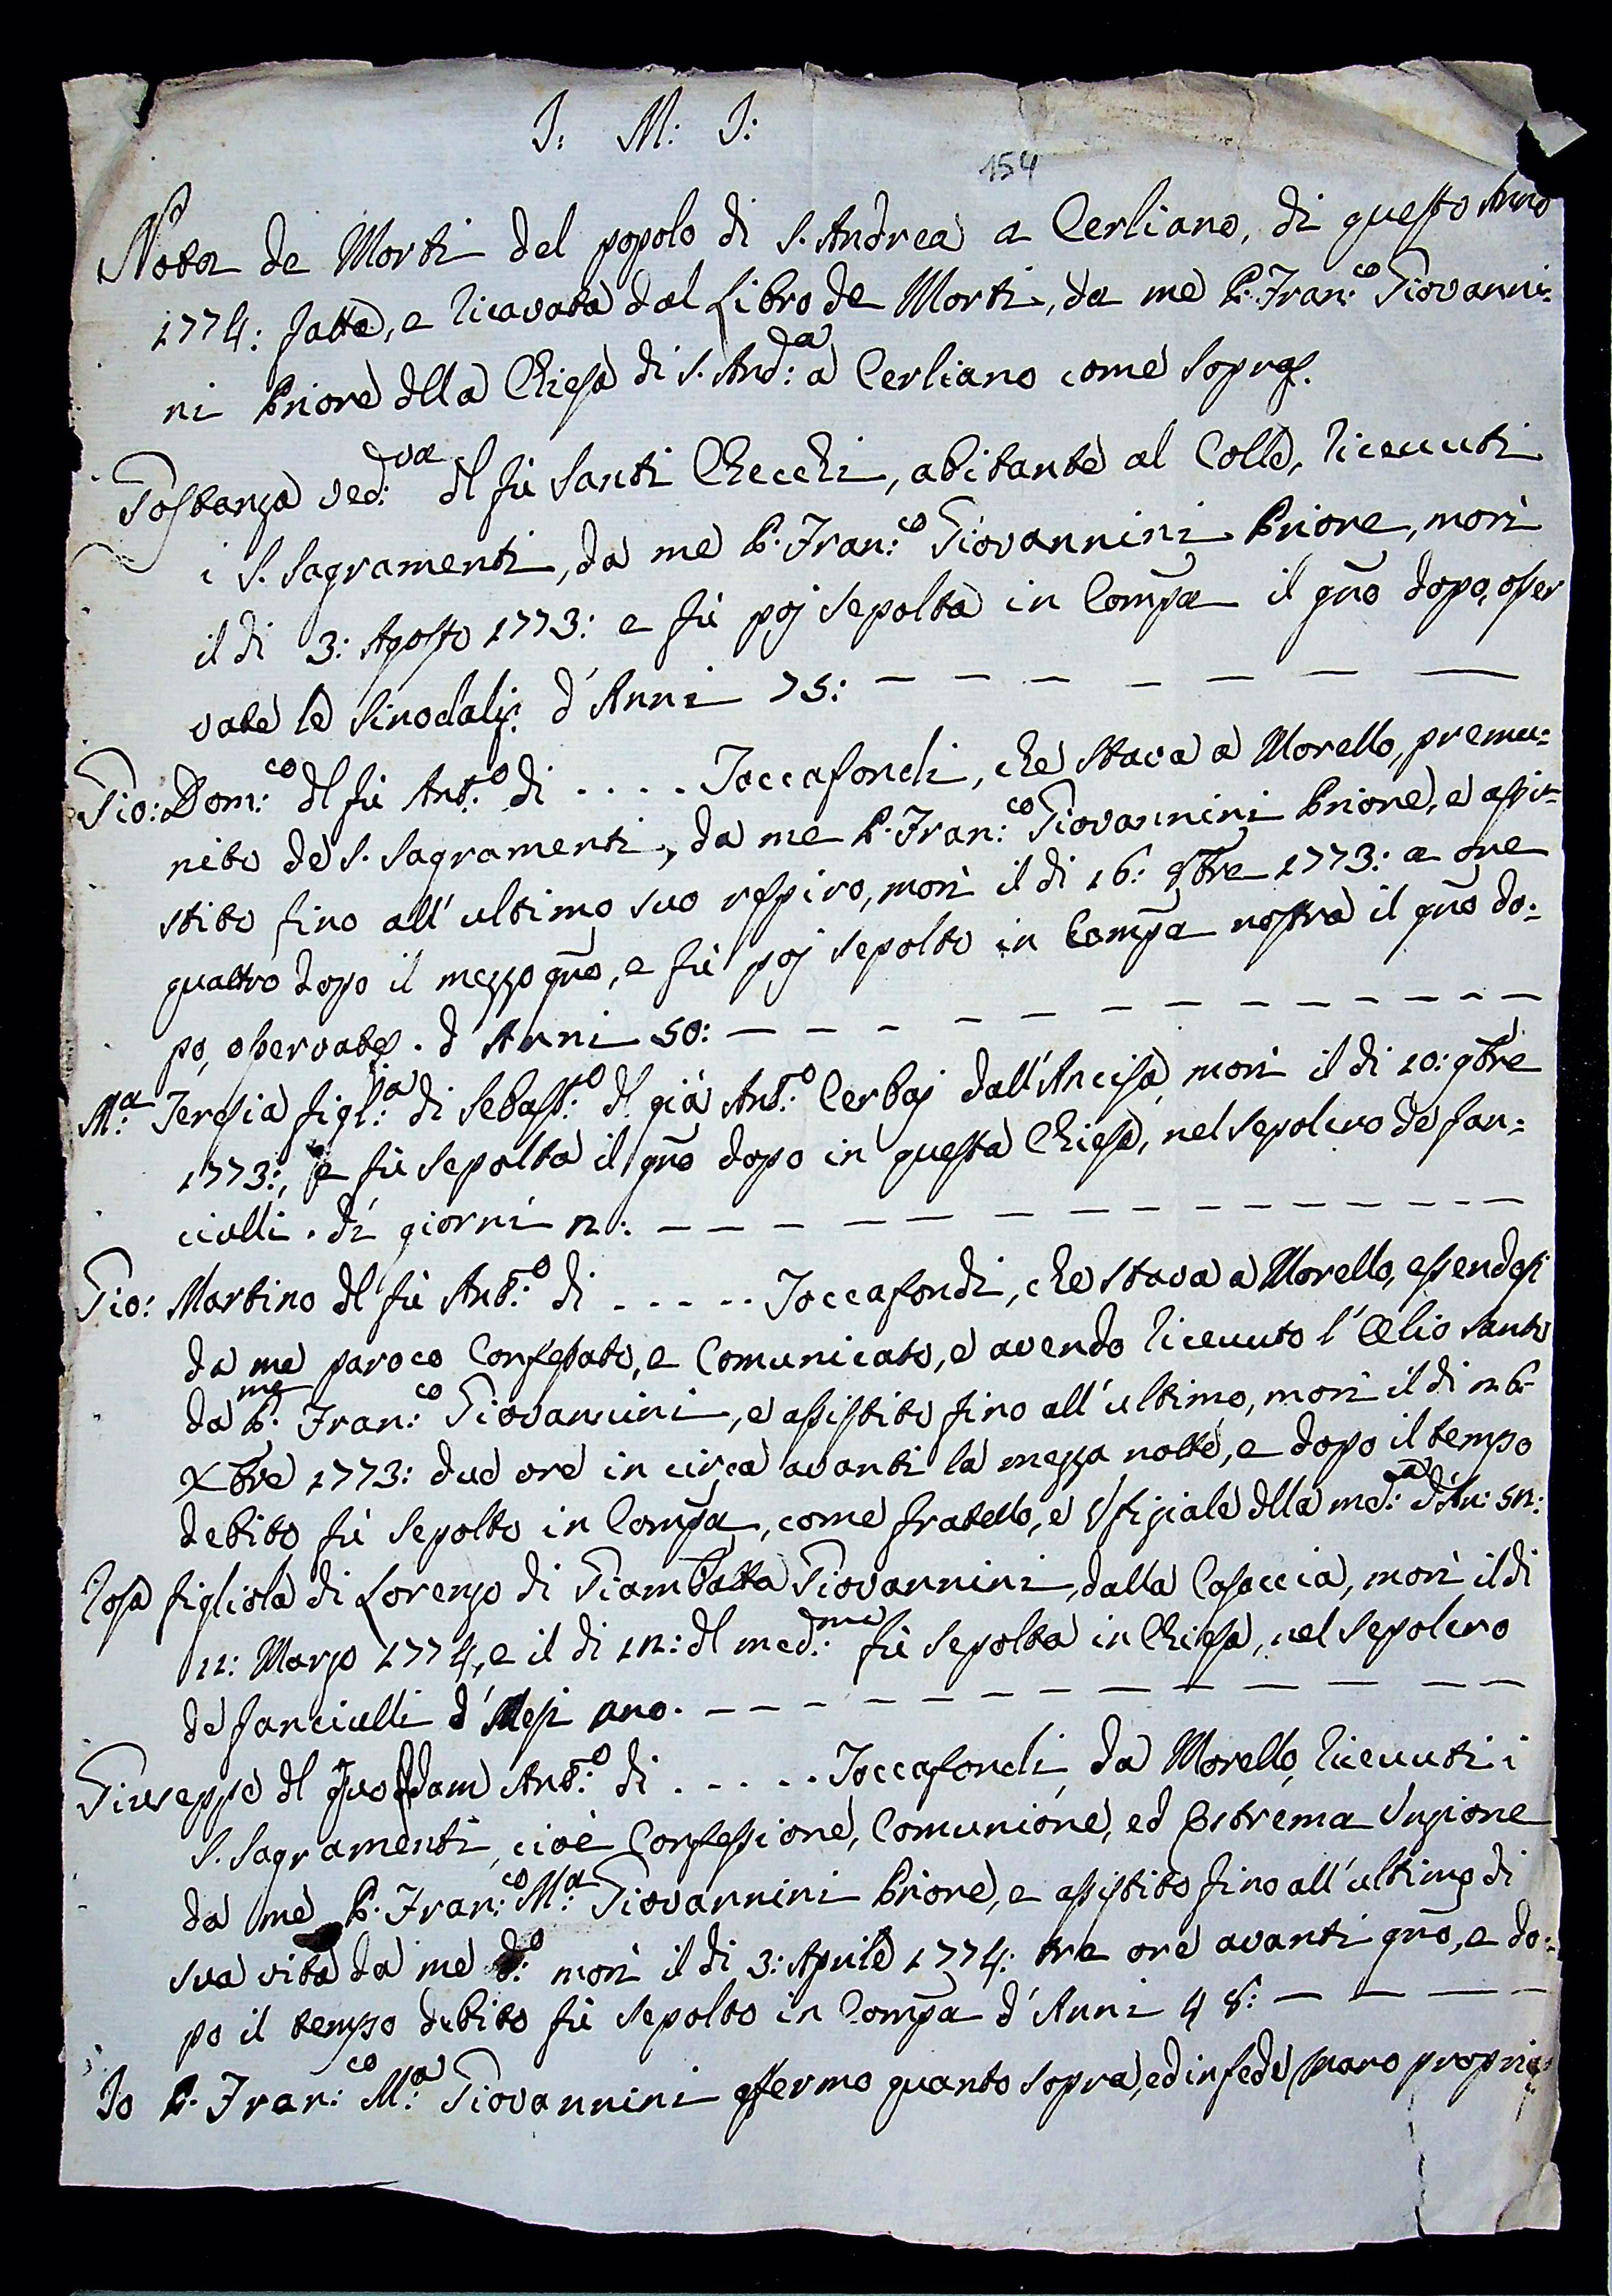 J: M: J:
154
Nota de Morti del popolo di S. Andrea a Cerliano, di questo Anno
1774: fatta, e ricavata dal Libro de Morti, da me P. Fran:co Giovanni-
ni Priore dlla Chiesa di S. And:a a Cerliano come sopra.
Gostanza ved:va dl fù Santi Checchi, abitante al Colle, riceuuti
i S. Sagramenti, da me P. Fran:co Giovannini Priore, morì
il di 3: Agosto 1773: e fù poj sepolta in Compa il gno dopo, osser
vate le Sinodali. d'Anni 75:
Gio: Dom:co dl fù Ant:o di ..... Toccafondi, che stava a Morello, premu:
nito de S. Sagramenti, da me P. Fran:co Giovannini Priore, e assi=
stito fino all'ultimo suo respiro, morì il di 16: 9bre 1773: a ore
quattro dopo il mezzo gno, e fù poj sepolto in Compa nostra il gno do:
po, osservate. d'Anni 50:
M:a Teresia figl:a di Sebast:o dl già Ant:o Cerbaj dall'Ancisa, morì il di 20: 9bre
1773:, e fù sepolta il gno dopo in questa Chiesa, nel sepolcro de fan:
ciulli. di giorni 2:
Gio: Martino dl fù Ant:o di ..... Toccafondi, che stava a Morello, essendosi
da me paroco Confessato, e Comunicato, e avendo riceuuto l'Olio Santo
da me P. Fran:co Giovannini, e assistito fino all'ultimo, morì il di 26
Xbre 1773: due ore in circa avanti la mezza notte, e dopo il tempo
debito fù sepolto in Compa, come fratello, e Vfiziale dlla med:a d'An: 52:
Rosa figliola di Lorenzo di Giambatta Giovannini, dalla Casaccia, morì il di
11: Marzo 1774, e il di 12: dl med:mo fù sepolta in Chiesa, nel sepolcro
de fanciulli d'Mesi uno.
Giuseppe dl quondam Ant:o di ..... Toccafondi, da Morello, riceuuti i
S. Sagramenti, cioè Confessione, Comunione, ed Estrema Unzione
da me P. Fran:co M:a Giovannini Priore, e assistito fino all'ultimo di
sua vita da me d:o morì il di 3: Aprile 1774: tre ore avanti gno, e do:
po il tempo debito fù sepolto in Compa d'Anni 48:
Io P. Fran:co M:a Giovannini affermo quanto sopra, ed in fede mano propria